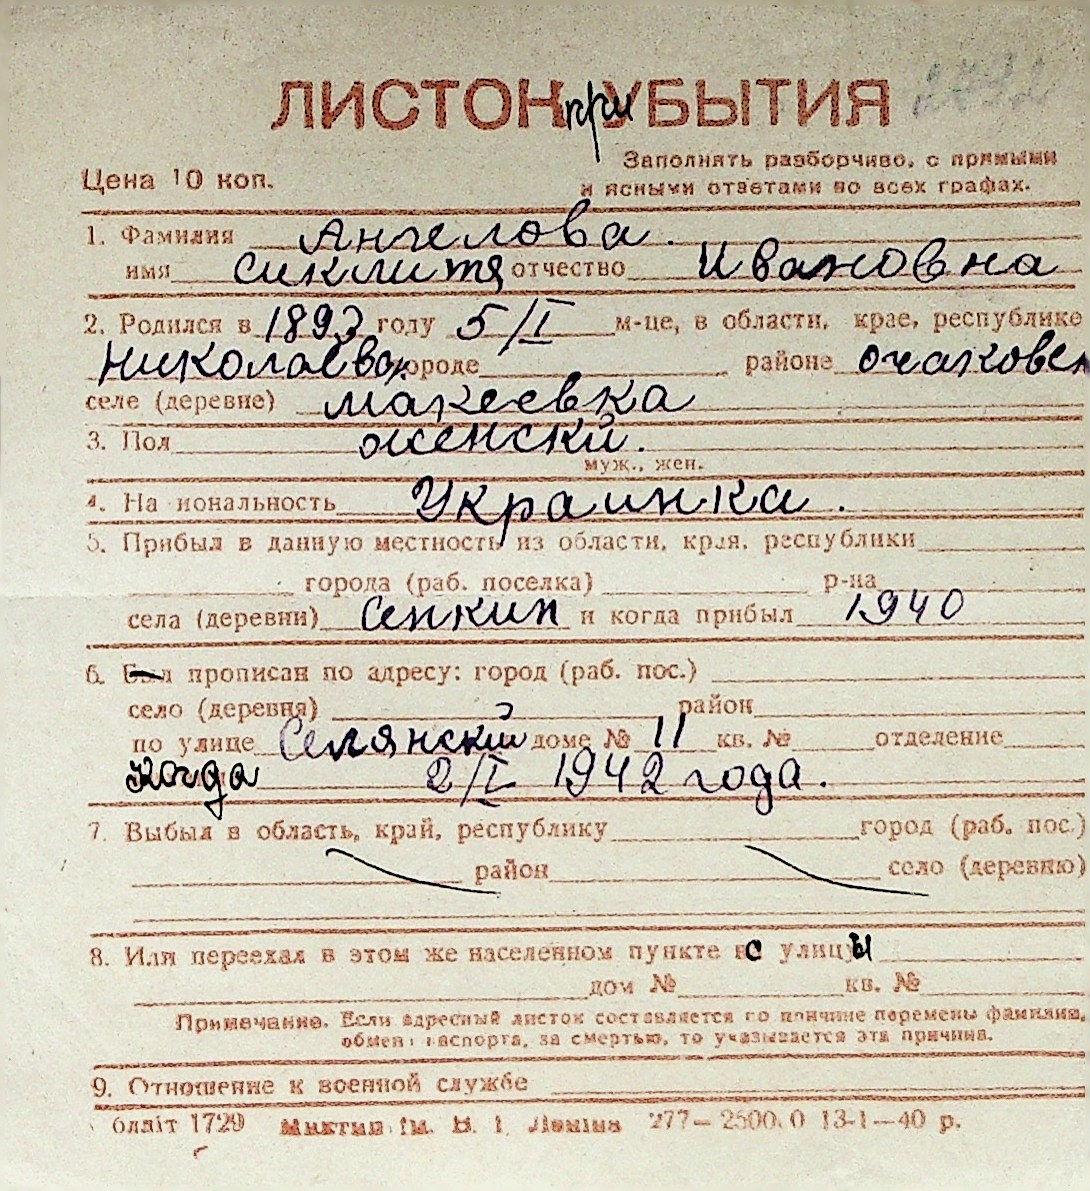 ЛИСТОК приУБЫТИЯ
Заполнять разборчиво, с прямыми
Цена 10 коп.
и ясными ответами во всех графах.
1. Фамилия Ангелова.
имя Сиклитя отчество Ивановна
2. Родился в 1893 году 5/I м-це, в области, крае, республике
Николаевск городе районе очаковск
селе (деревне) Макеевка
3. Пол женский.
муж., жен.
4. Национальность Украинка.
5. Прибыл в данную местность из области, края, республики
города (раб. поселка) р-на
села (деревни) и когда прибыл 1940
6. Был прописан по адресу: город (раб. пос.)
село (деревня) район
по улице Селянский доме № 11 кв. № отделение
когда 2/I 1942 года.
7. Выбыл в область, край, республику город (раб. пос.)
район село (деревню)
8. Или переехал в этом же населенном пункте с улицы
дом № кв. №
Примечание. Если адресный листок составляется по причине перемены фамилии,
обмена паспорта, за смертью, то указывается эта причина.
9. Отношение к военной службе
1729 ім. В. І. Леніна 277—2500.0 13-1—40 р.